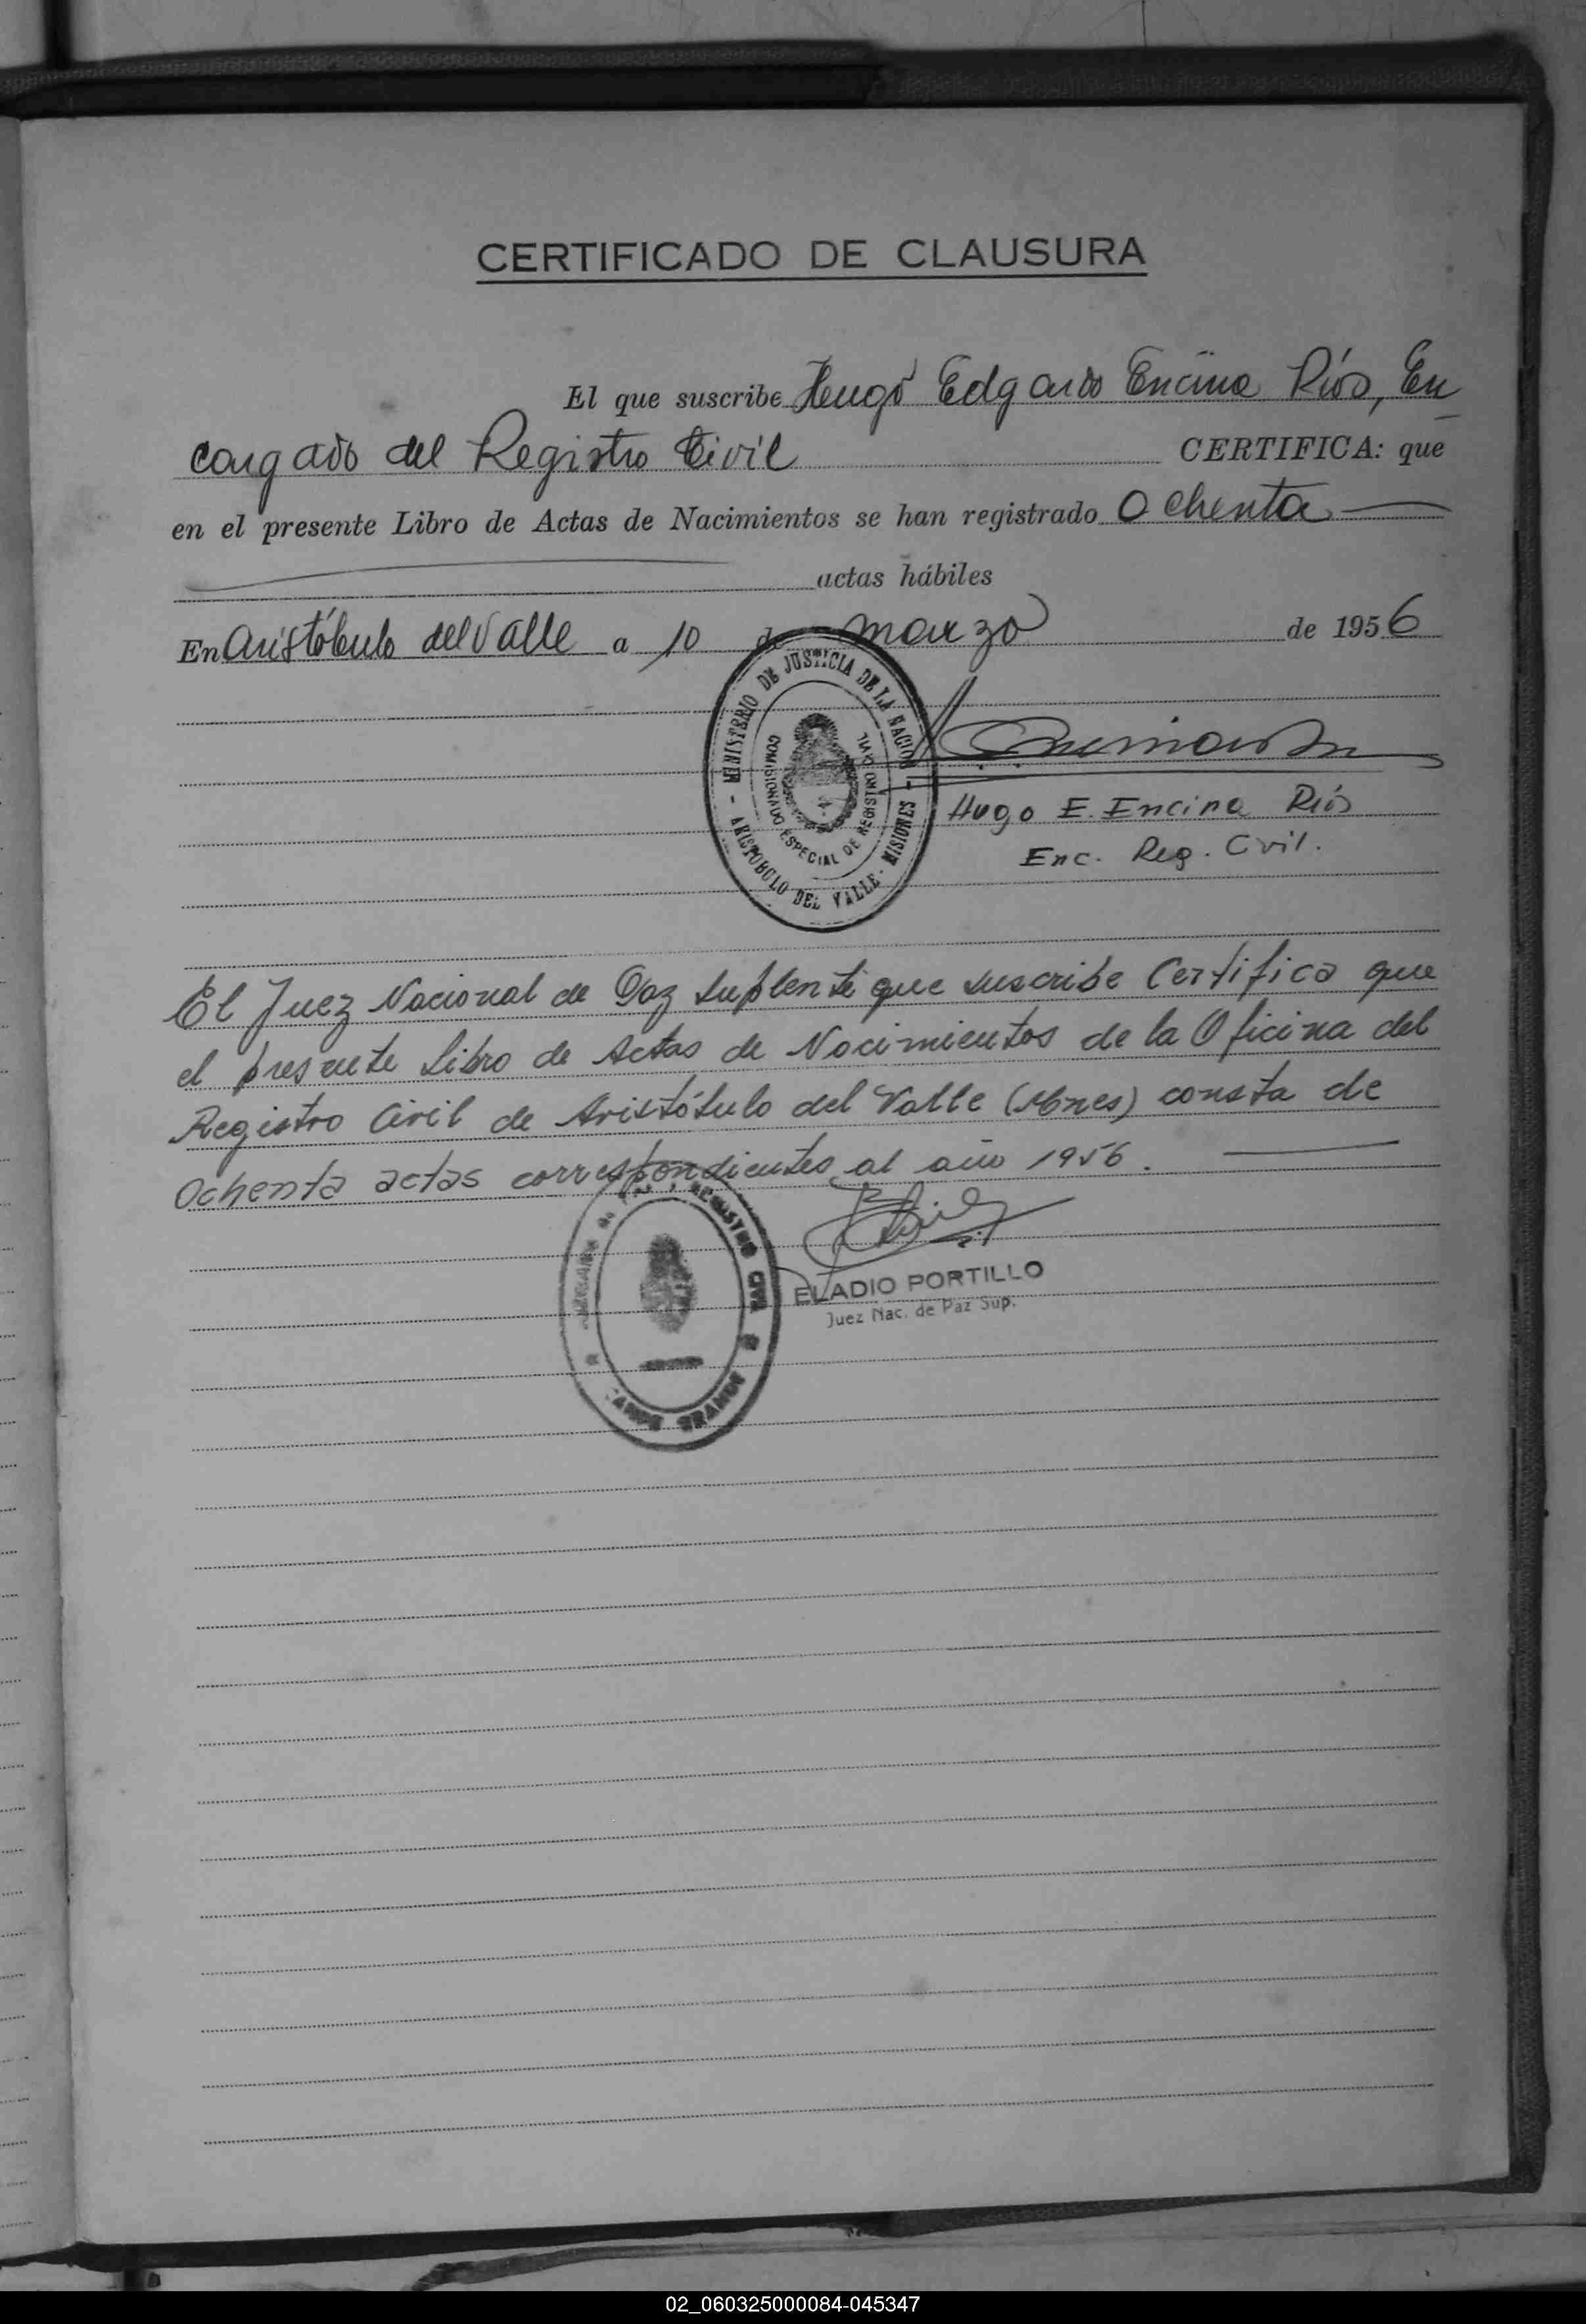 CERTIFICADO DE CLAUSURA
El que suscribe Hugo Edgardo Encina Ríos, En
cargado del Registro Civil CERTIFICA: que
en el presente Libro de Actas de Nacimientos se han registrado Ochenta
actas hábiles
En Aristóbulo del Valle a 10 de marzo de 1956
MINISTERIO DE JUSTICIA DE LA NACION
COMISIONADO ESPECIAL DE REGISTRO CIVIL
ARISTOBULO DEL VALLE - MISIONES
Hugo E. Encina Ríos
Enc. Reg. Civil.
El Juez Nacional de Paz Suplente que suscribe Certifica que
el presente Libro de Actas de Nacimientos de la Oficina del
Registro Civil de Aristóbulo del Valle (Mnes) consta de
Ochenta actas correspondientes al año 1956.
REGISTRO CIVIL
CAMPO GRANDE
ELADIO PORTILLO
Juez Nac. de Paz Sup.
02_060325000084-045347